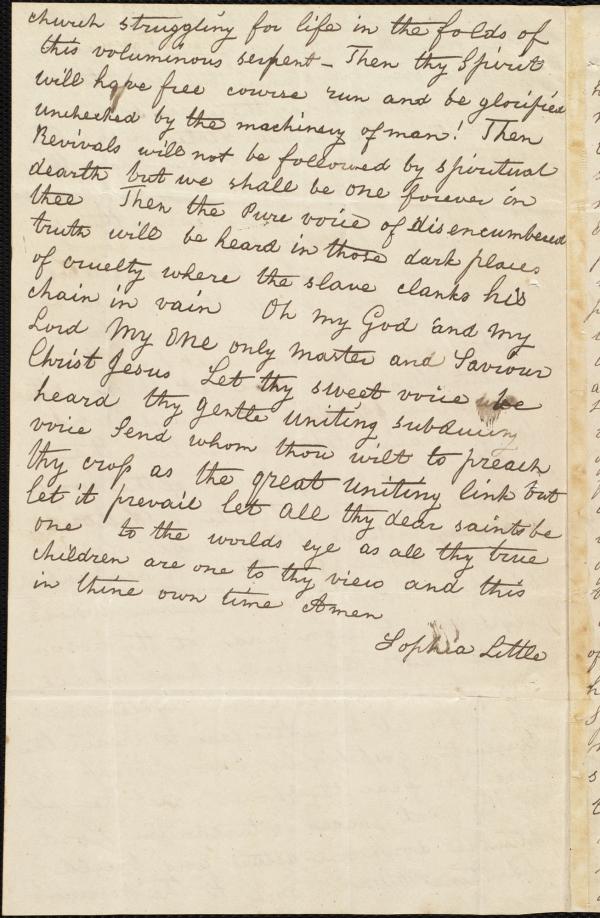 church struggling for life in the folds of
this voluminous serpent - Then thy Spirit
will have free course run and be glorified
unchecked by the machinery of man! Then
Revivals will not be followed by spiritual
dearth but we shall be one forever in
thee Then the Pure voice of disencumbered
truth will be heard in those dark places
of cruelty where the slave clanks his
chain in vain Oh my God and my
Lord My One only master and Saviour
Christ Jesus Let thy sweet voice be
heard thy gentle uniting subduing
voice Send whom thou wilt to preach
thy cross as the great uniting link but
let it prevail let all thy dear saints be
one to the worlds eye as all thy true
children are one to thy view and this
in thine own time Amen
Sophia Little